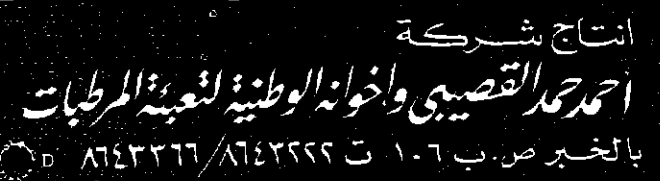 انتاج شركة
احمد حمد القصيبي واخوانه الوطنية لتعبئة المرطبات
بالخبر ص.ب ١٠٦ ت ٨٦٤٣٢٢٢/٨٦٤٣٣٦٦ D